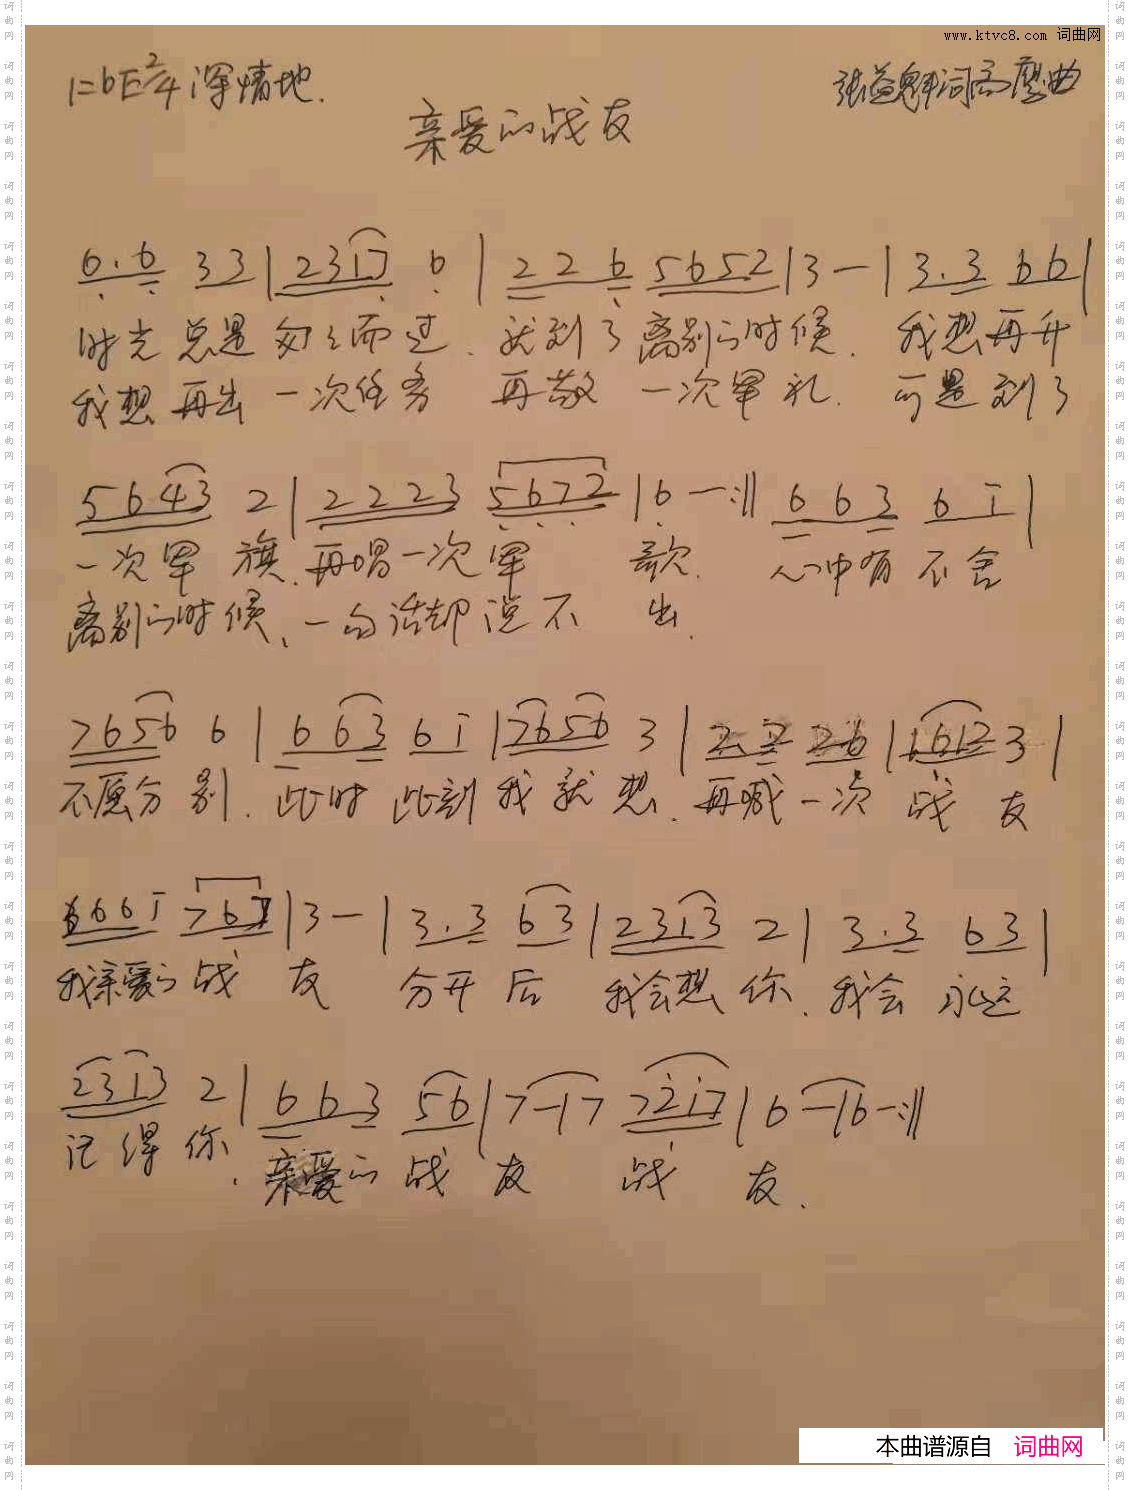 www.ktvc8.com 词曲网
1=bE 2/4 深情地.
张益魁词 高磨曲
亲爱的战友
6. 6 3 3 | 2 3 1 7 6 | 2 2 6 5 6 5 2 | 3 — | 3. 3 6 6 |
时光总是匆匆而过.就到了离别的时候.我想再升
我想再出一次任务 再敬一次军礼.可是到了
5 6 4 3 2 | 2 2 2 3 5 6 7 2 | 6 — :|| 6 6 3 6 i |
一次军旗.再唱一次军歌.心中有不舍
离别的时候、一句话却说不出.
7 6 5 6 6 | 6 6 3 6 i | 7 6 5 6 3 | 2. 2 2 6 | 1 6 1 2 3 |
不愿分别.此时此刻我就想.再喊一次战友
6 6 6 i 7 6 7 | 3 — | 3. 3 6 3 | 2 3 1 3 2 | 3. 3 6 3 |
我亲爱的战友 分开后 我会想你.我会永远
2 3 1 3 2 | 6 6 3 5 6 | 7 — | 7 7 2 i 7 | 6 — | 6 — :||
记得你.亲爱的战友 战友.
本曲谱源自 词曲网